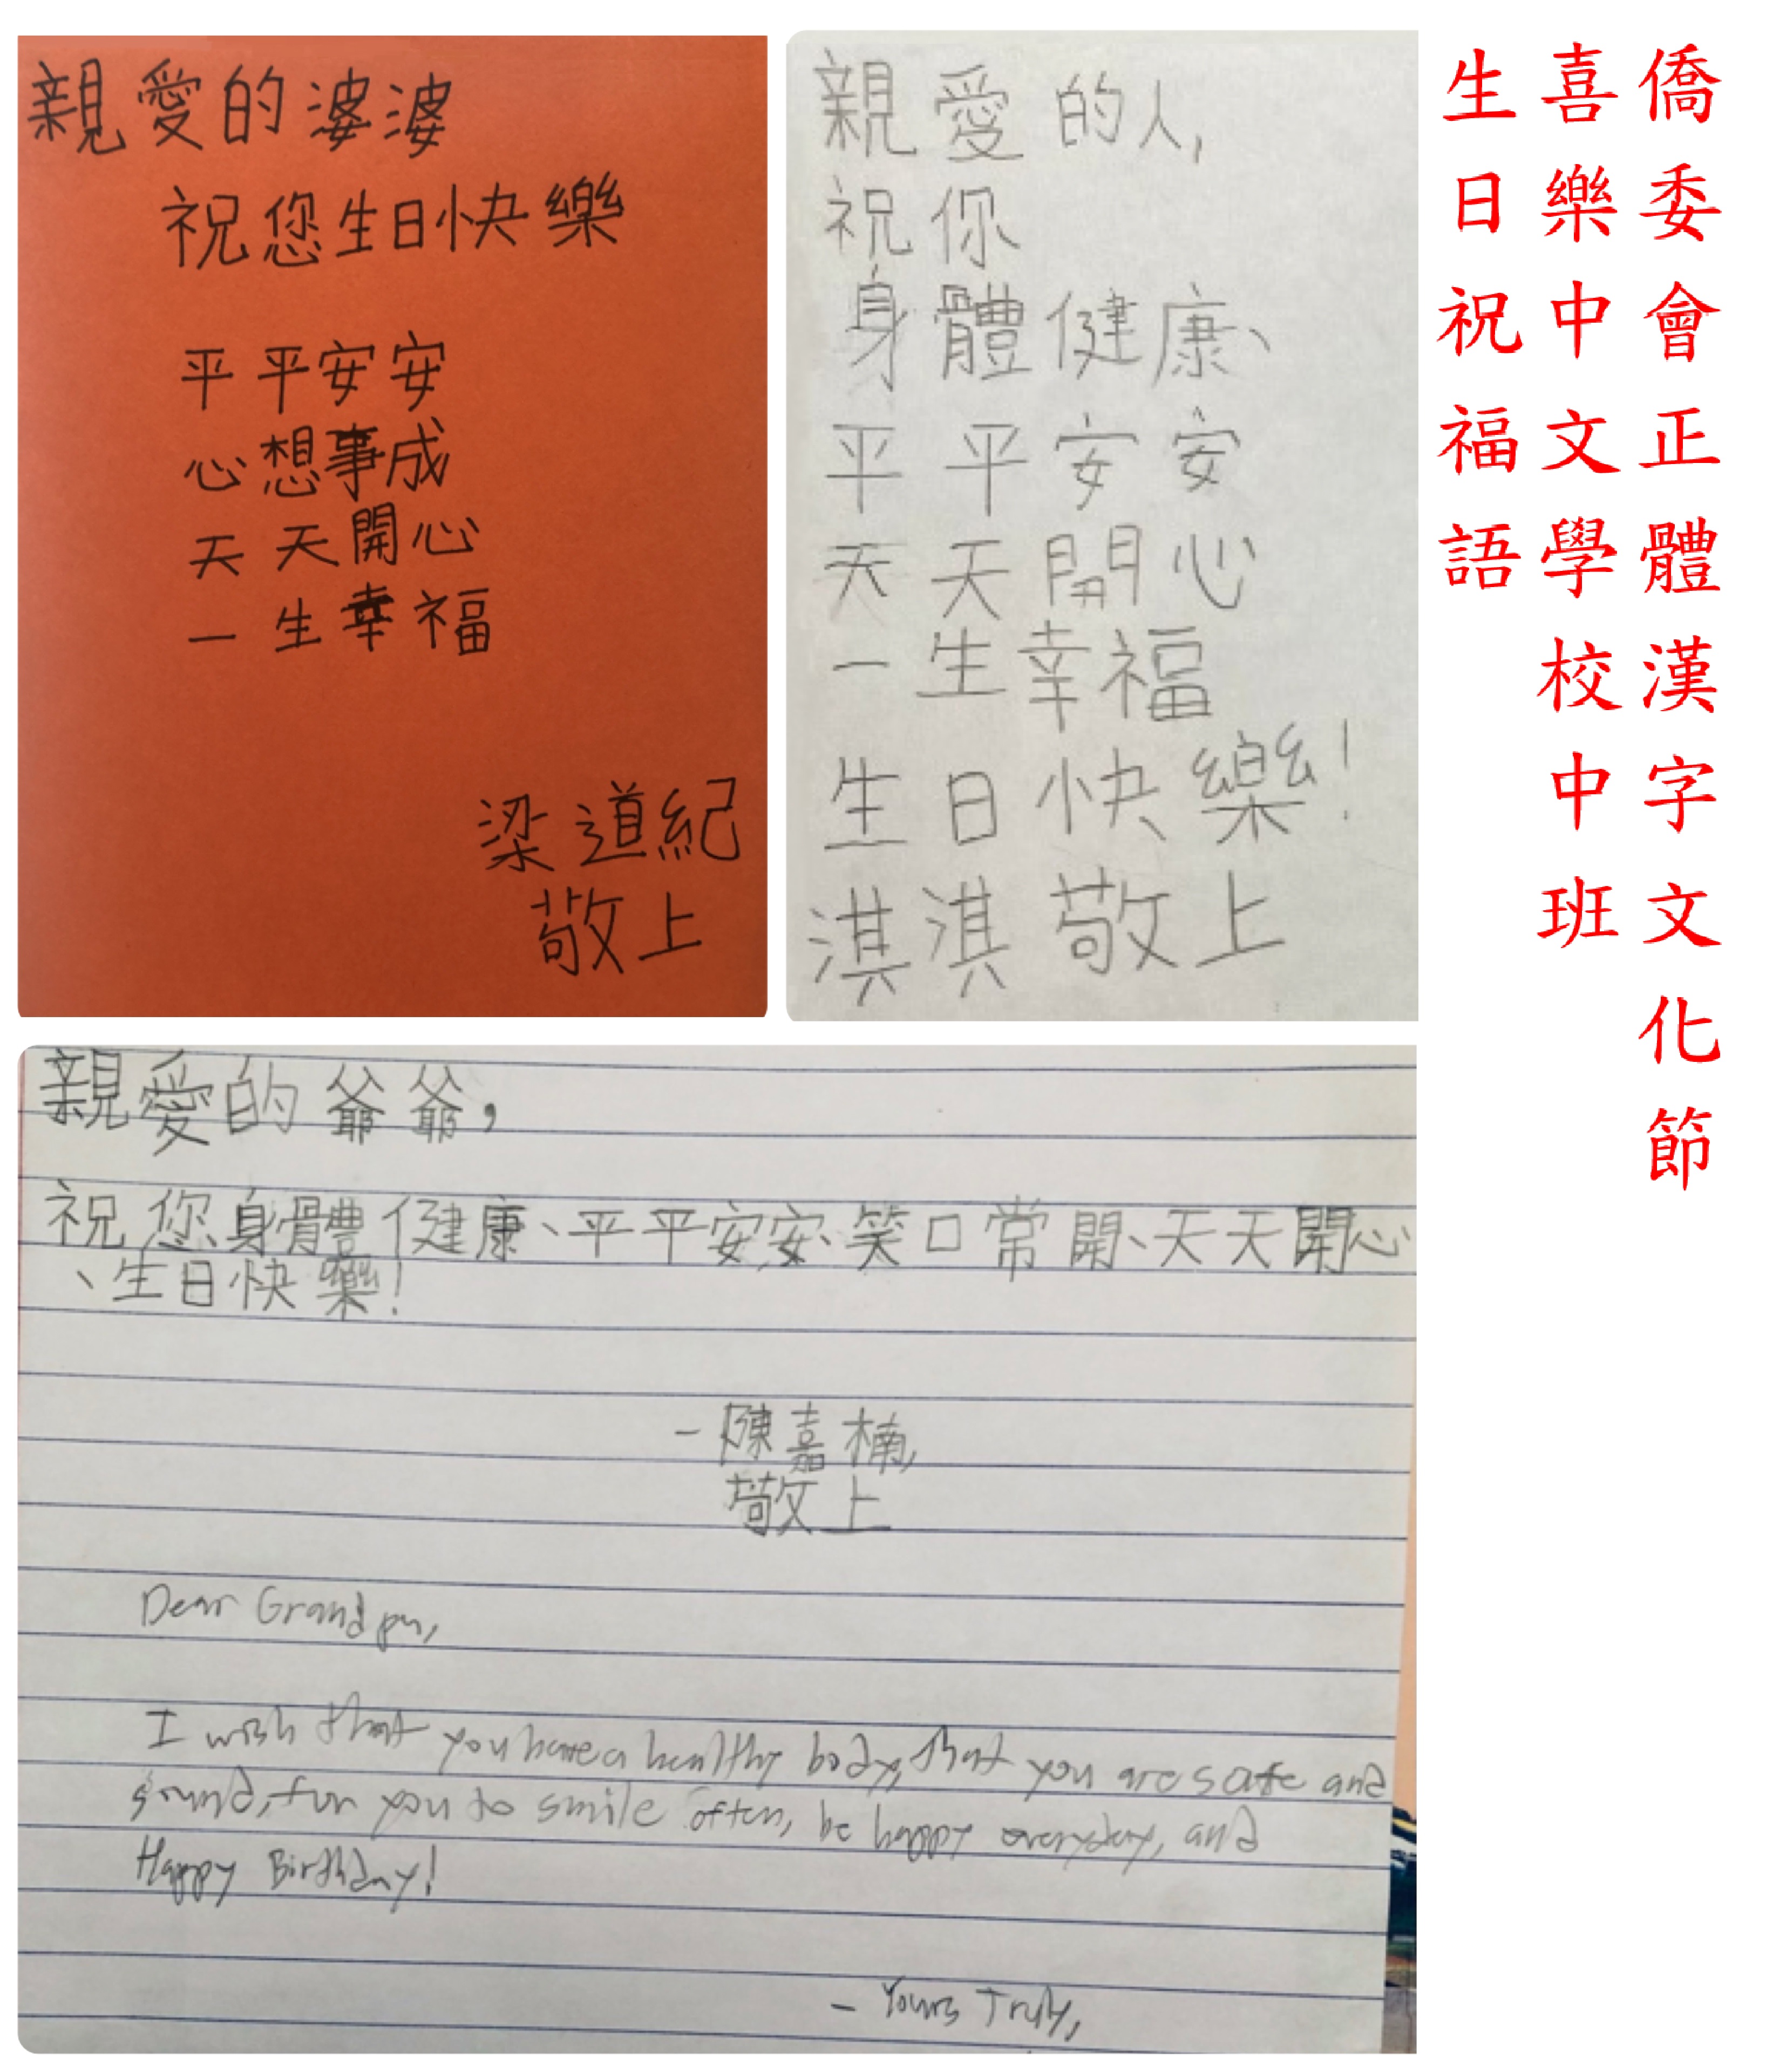 僑委會正體漢字文化節
喜樂中文學校中班
生日祝福語
親愛的婆婆
祝您生日快樂
平平安安
心想事成
天天開心
一生幸福
梁道紀
敬上
親愛的人,
祝你
身體健康、
平平安安
天天開心
一生幸福
生日快樂!
淇淇敬上
親愛的爺爺,
祝您身體健康、平平安安、笑口常開、天天開心
、生日快樂!
- 陳嘉楠,
敬上
Dear Grandpa,
I wish that you have a healthy body, that you are safe and
sound, for you to smile often, be happy everyday, and
Happy Birthday!
- Yours Truly,